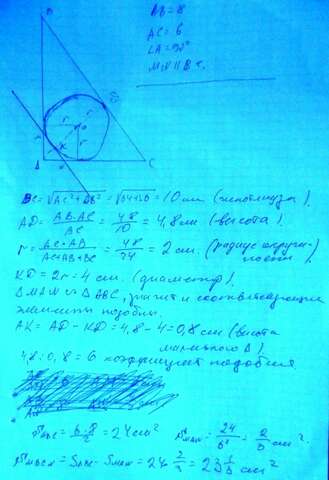 AB=8
AC=6
∠A=90°
MN || BC.
B
r
r
o
r
K
A
C
BC = √AC²+AB² = √64+36 = 10 см (гипотенуза).
AD = AB·AC / BC = 48/10 = 4,8 см (высота).
r = AC·AB / AC+AB+BC = 48/24 = 2 см. (радиус окружности
KD = 2r = 4 см. (диаметр).
Δ MAN ∾ Δ ABC, значит и соответствующие
элементы подобны.
AK = AD - KD = 4,8 - 4 = 0,8 см (высота
маленького Δ).
4,8:0,8 = 6 коэффициент подобия.
S ABC = 6·8/2 = 24 см² S MAN = 24/6² = 2/3 см².
S MBCN = S ABC - S MAN = 24 - 2/3 = 23 1/3 см²